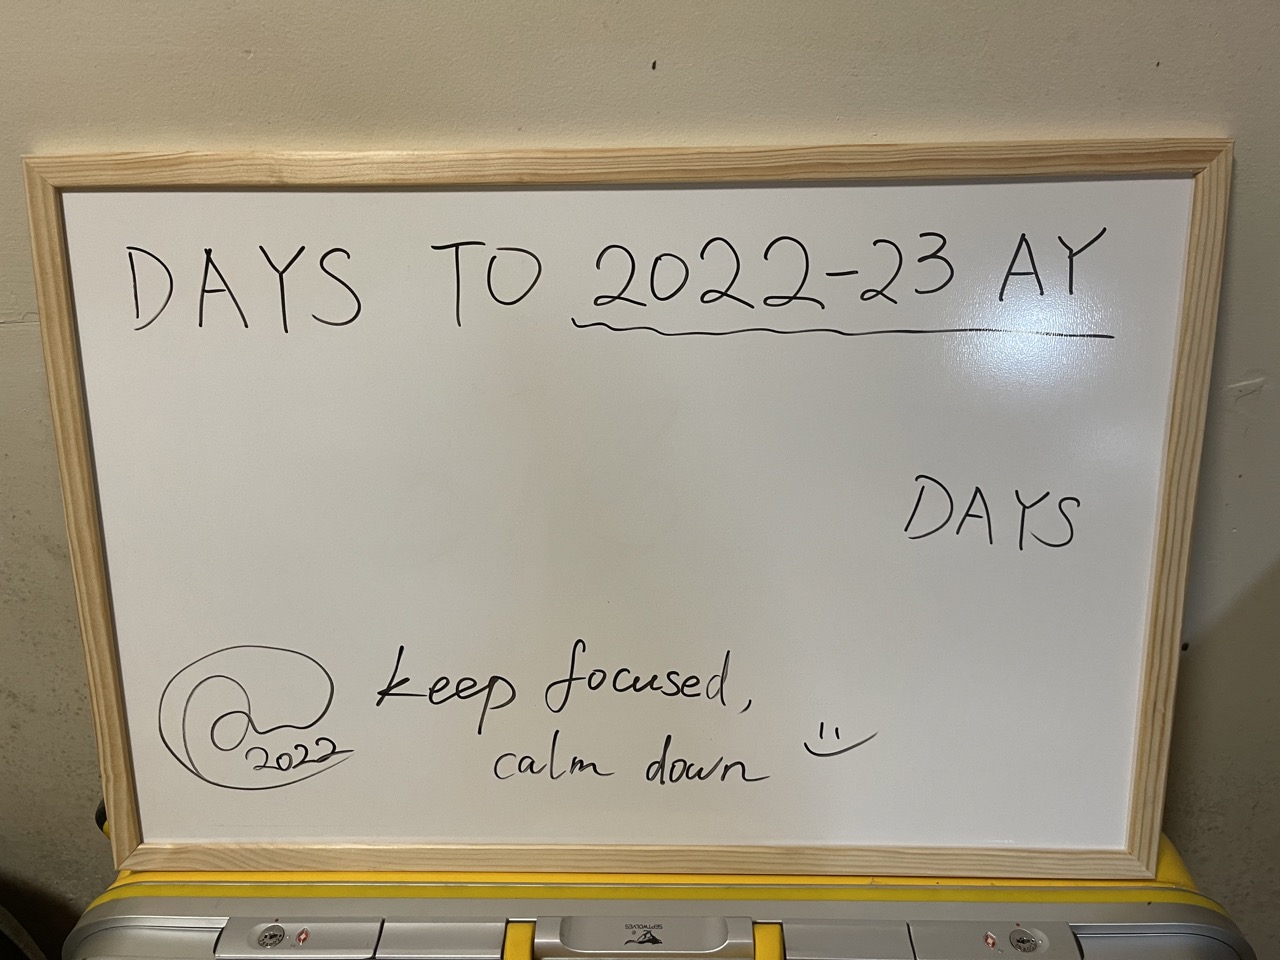 DAYS TO 2022-23 AY
DAYS
keep focused,
calm down
2022
SEPTWOLVES